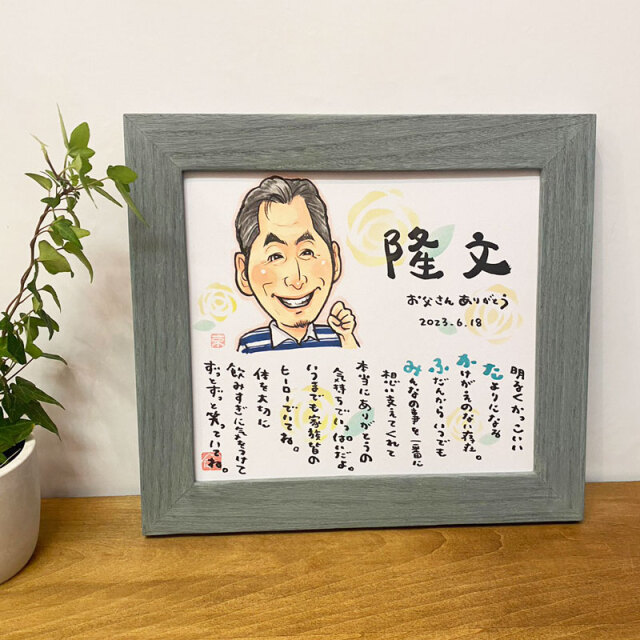 隆文
お父さんありがとう
2023.6.18
明るくかっこいい
たよりになる
かけがえのない存在。
ふだんからいつでも
みんなの事を一番に
想い支えてくれて
本当にありがとうの
気持ちでいっぱいだよ。
いつまでも家族皆の
ヒーローでいてね。
体を大切に
飲みすぎに気をつけて
ずっとずっと笑っていてね。